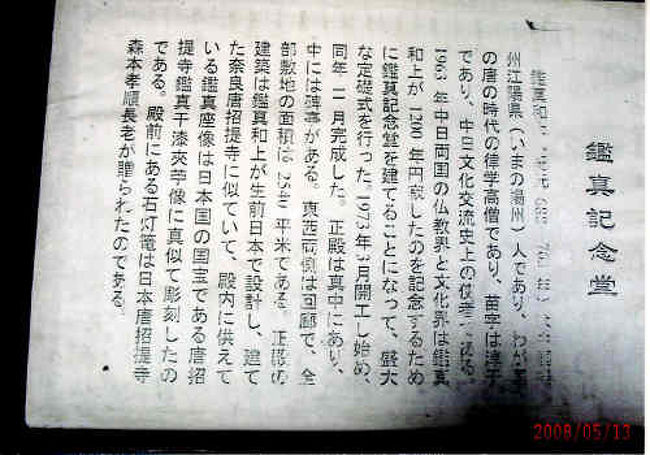 鑑真記念堂
鑑真和
州江陽県(いまの揚州)人であり、わが
の唐の時代の律学高僧であり、苗字は淳于
であり、中日文化交流史上の使者である。
1963 年中日両国の仏教界と文化界は鑑真
和上が 1200 年円寂したのを記念するため
に鑑真記念堂を建てることになって、盛大
な定礎式を行った。1973年3月開工し始め、
同年 11月完成した。正殿は真中にあり、
中には碑亭がある。東西両側は回廊で、全
部敷地の面積は 2540 平米である。正殿の
建築は鑑真和上が生前日本で設計し、建て
た奈良唐招提寺に似ていて、殿内に供えて
いる鑑真座像は日本国の国宝である唐招
提寺鑑真干漆夾苧像に真似て彫刻したの
である。殿前にある石灯篭は日本唐招提寺
森本孝順長老が贈られたのである。
2008/05/13